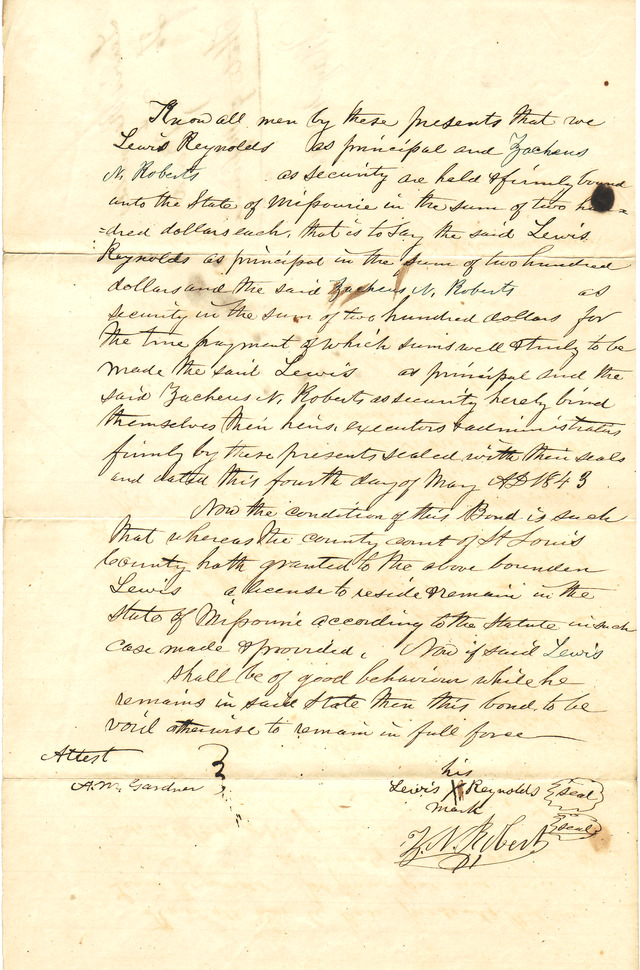 Know all men by these presents that we
Lewis Reynolds as principal and Zacheus
N. Roberts as security are held & firmly bound
unto the State of Missourie in the sum of two hun=
=dred dollars each, that is to say the said Lewis
Reynolds as principal in the sum of two hundred
dollars and the said Zacheus N. Roberts as
security in the sum of two hundred dollars for
the true payment of which sums well & truly to be
made the said Lewis as principal and the
said Zacheus N. Roberts as security hereby bind
themselves their heirs, executors & administrators
firmly by these presents sealed with their seals
and dated this fourth day of May AD 1843
Now the condition of this Bond is such
that whereas the county court of St Louis
County hath granted to the above bounden
Lewis a license to reside & remain in the
State of Missourie according to the Statute in such
case made & provided, Now if said Lewis
shall be of good behaviour while he
remains in said State then this bond to be
void otherwise to remain in full force
Attest
A.W. Gardner
his
Lewis X Reynolds seal
mark
Z. N. Robert seal